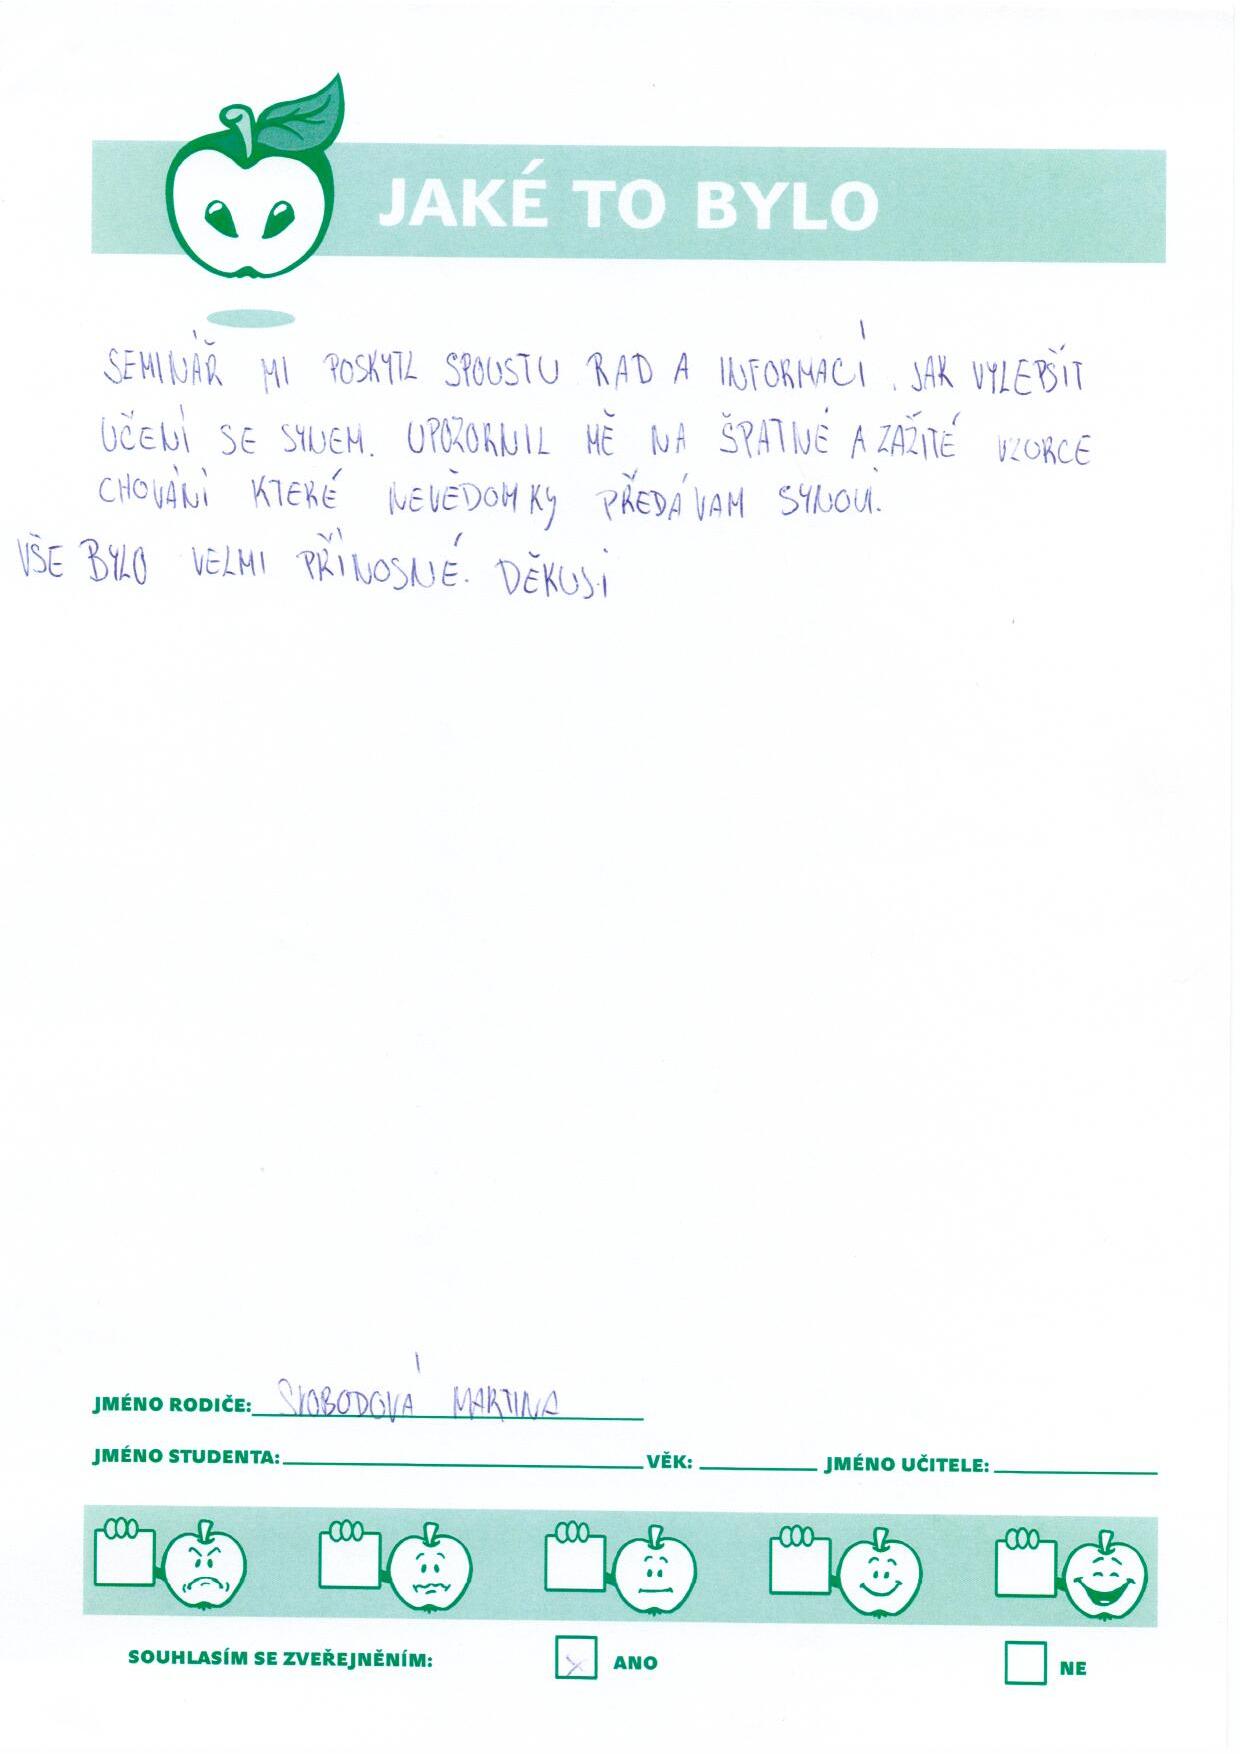 JAKÉ TO BYLO
SEMINÁŘ MI POSKYTL SPOUSTU RAD A INFORMACÍ. JAK VYLEPŠIT
UČENÍ SE SYNEM. UPOZORNIL MĚ NA ŠPATNÉ A ZAŽITÉ VZORCE
CHOVÁNÍ KTERÉ NEVĚDOMKY PŘEDÁVAM SYNOVI.
VŠE BYLO VELMI PŘÍNOSNÉ. DĚKUJI
JMÉNO RODIČE: SVOBODOVÁ MARTINA
JMÉNO STUDENTA: VĚK: JMÉNO UČITELE:
SOUHLASÍM SE ZVEŘEJNĚNÍM: ANO NE